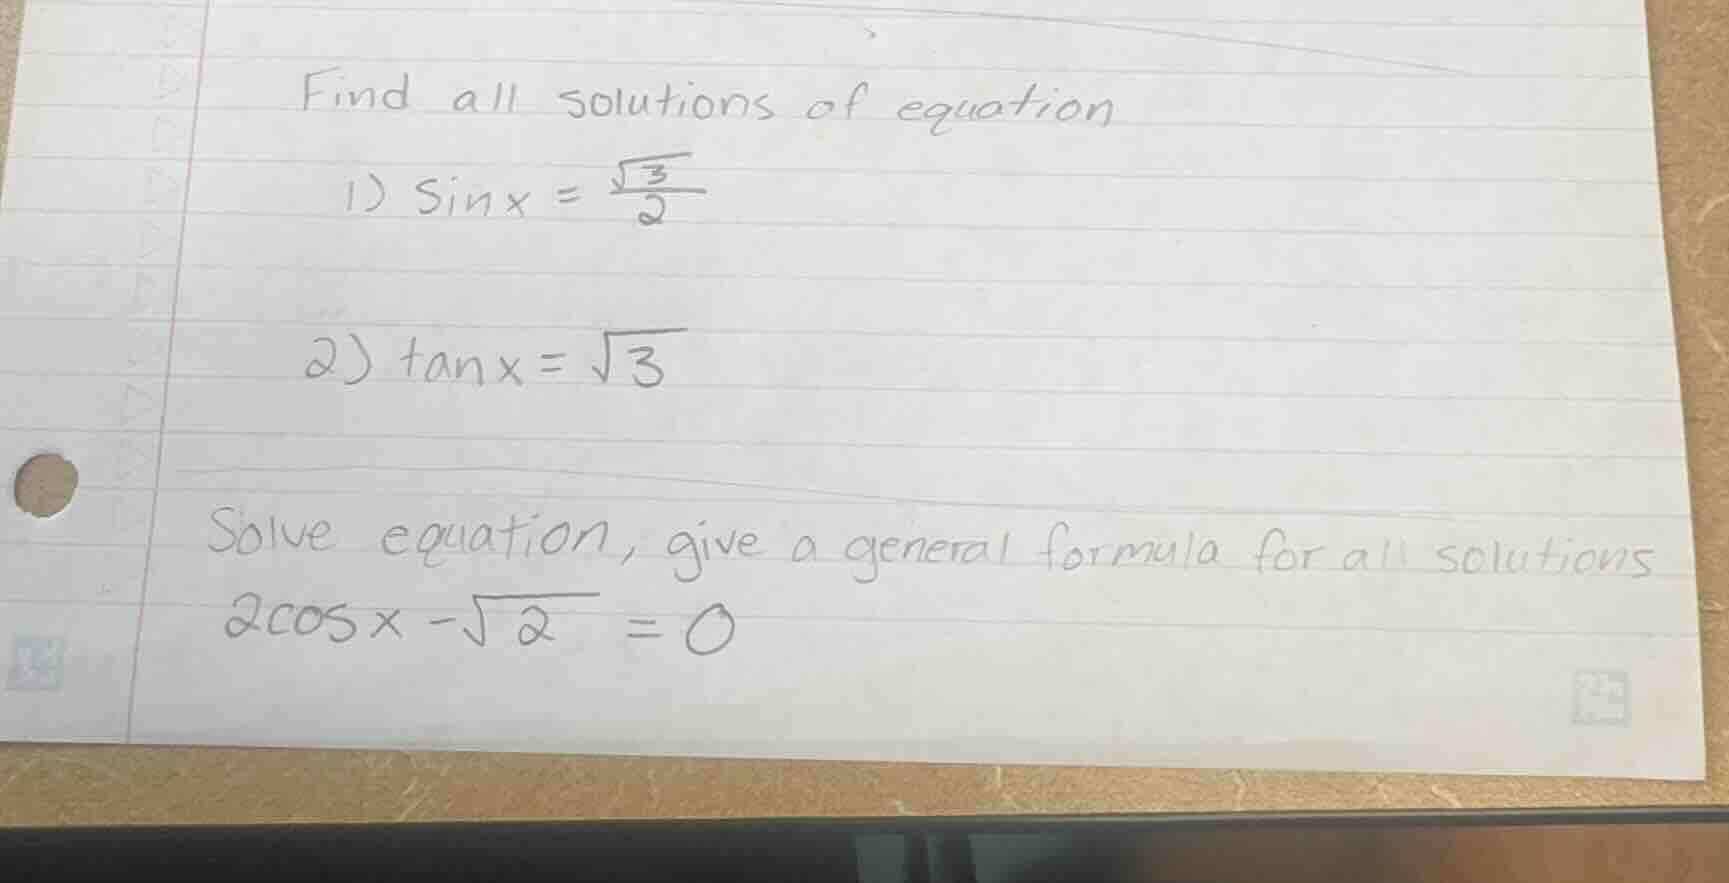 Find all solutions of equation
1) sinx = √3/2
2) tanx = √3
Solve equation, give a general formula for all solutions
2cosx - √2 = 0